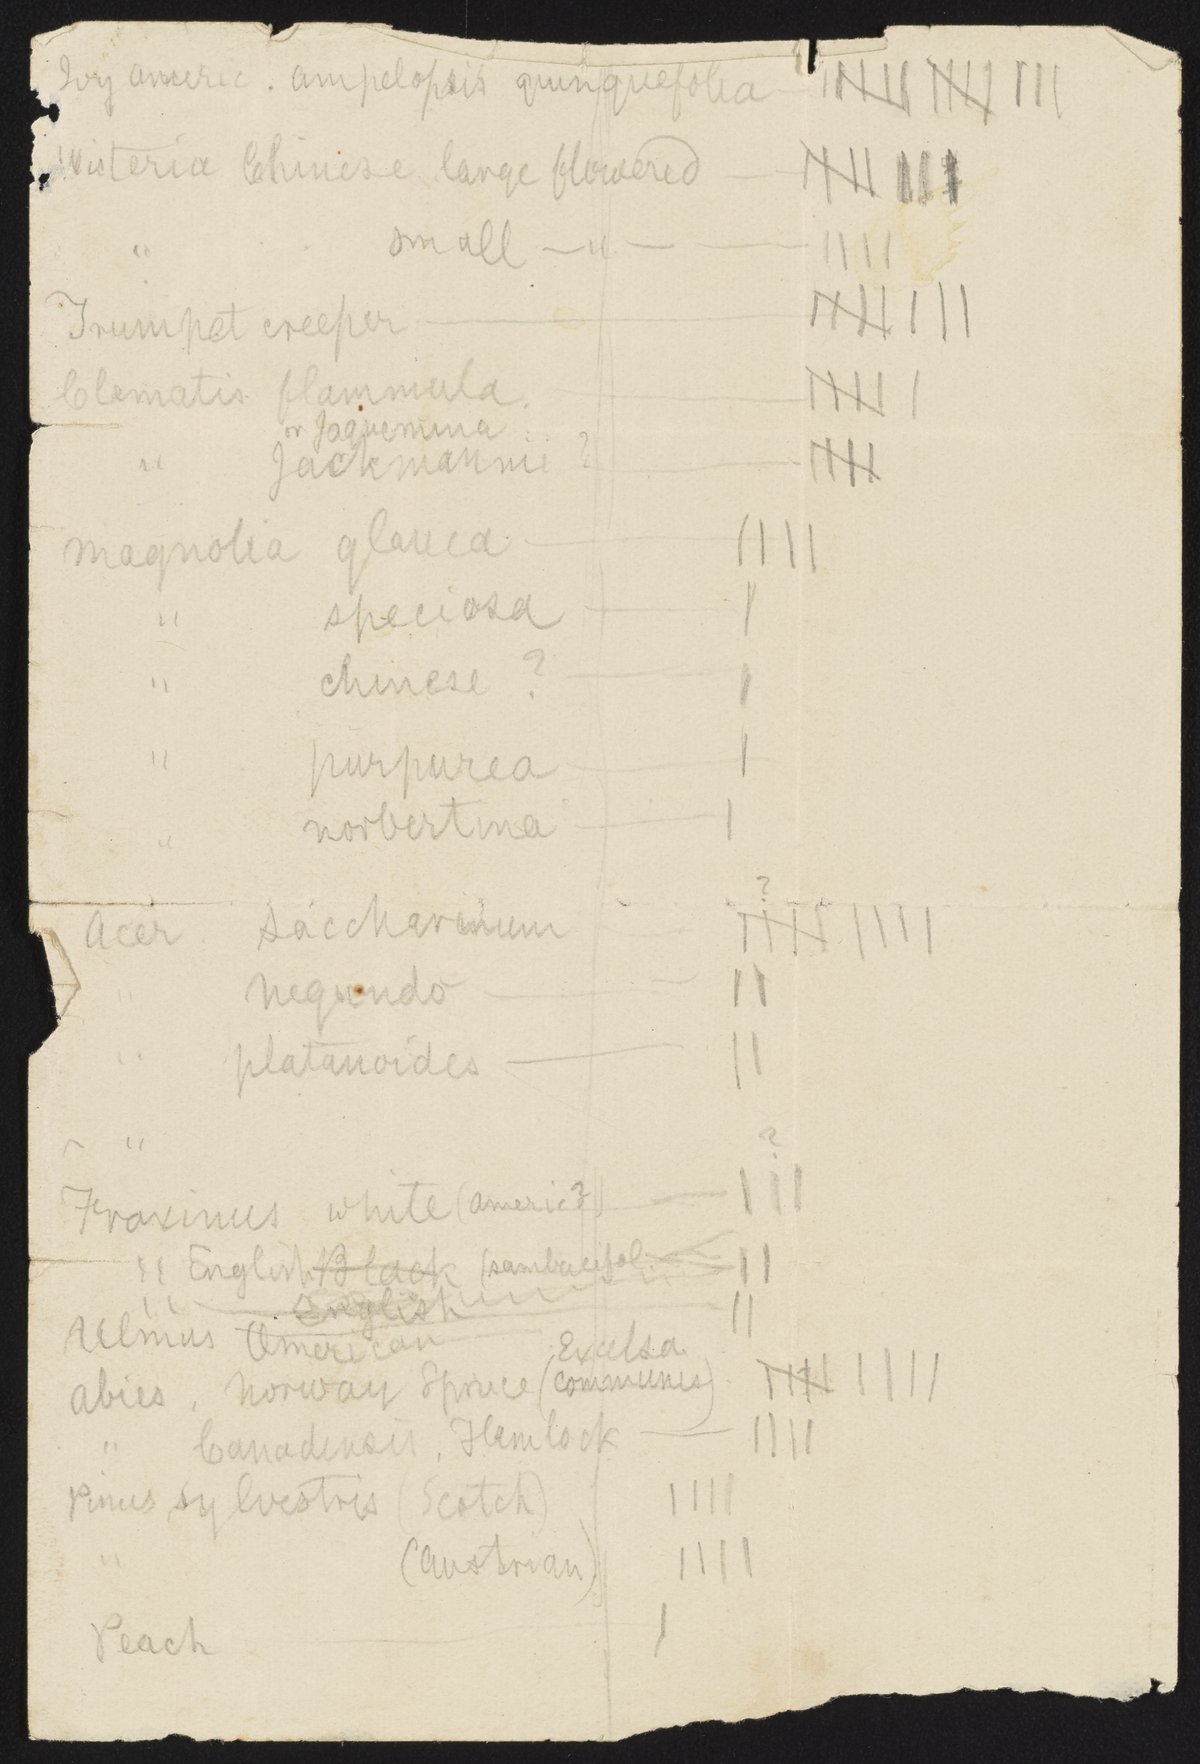 Ivy americ. ampelopsis quinquefolia
Wisteria Chinese large flowered
" small — " —
Trumpet creeper
Clematis flammula.
or Jaquemina
" Jackmannii ?
Magnolia glauca
" speciosa
" chinese ?
" purpurea
" norbertina
?
Acer saccharinum
" negundo
" platanoides
"
?
Fraxinus white (americ?)
" English Black (sambucifol
" English
Ulmus American
Excelsa
Abies, Norway Spruce (communis)
" Canadensis, Hemlock
Pinus sylvestris (Scotch)
" (Austrian)
Peach